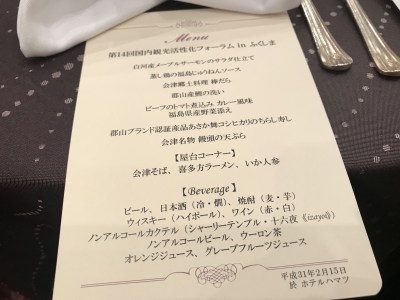 Menu
第14回国内観光活性化フォーラム in ふくしま
白河産メープルサーモンのサラダ仕立て
蒸し鶏の福島じゅうねんソース
会津郷土料理 棒だら
郡山産鯉の洗い
ビーフのトマト煮込み カレー風味
福島県産野菜添え
郡山ブランド認証産品あさか舞コシヒカリのちらし寿し
会津名物 饅頭の天ぷら
【屋台コーナー】
会津そば、喜多方ラーメン、いか人参
【Beverage】
ビール、日本酒（冷・燗）、焼酎（麦・芋）
ウィスキー（ハイボール）、ワイン（赤・白）
ノンアルコールカクテル（シャーリーテンプル・十六夜《izayoi》）
ノンアルコールビール、ウーロン茶
オレンジジュース、グレープフルーツジュース
平成31年2月15日
於 ホテルハマツ